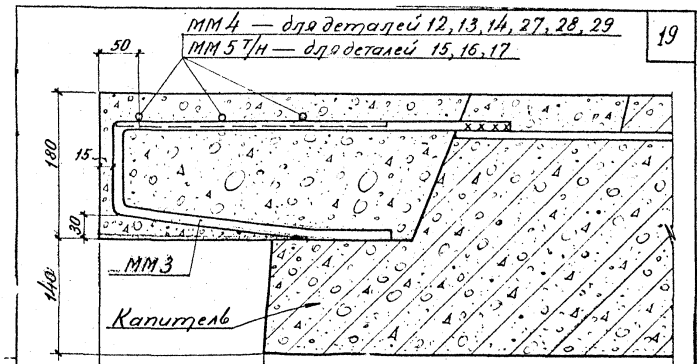 ММ4 — для деталей 12,13,14,27,28,29
ММ5 т/н — для деталей 15,16,17
19
50
180
15
30
140
ММ3
Капитель